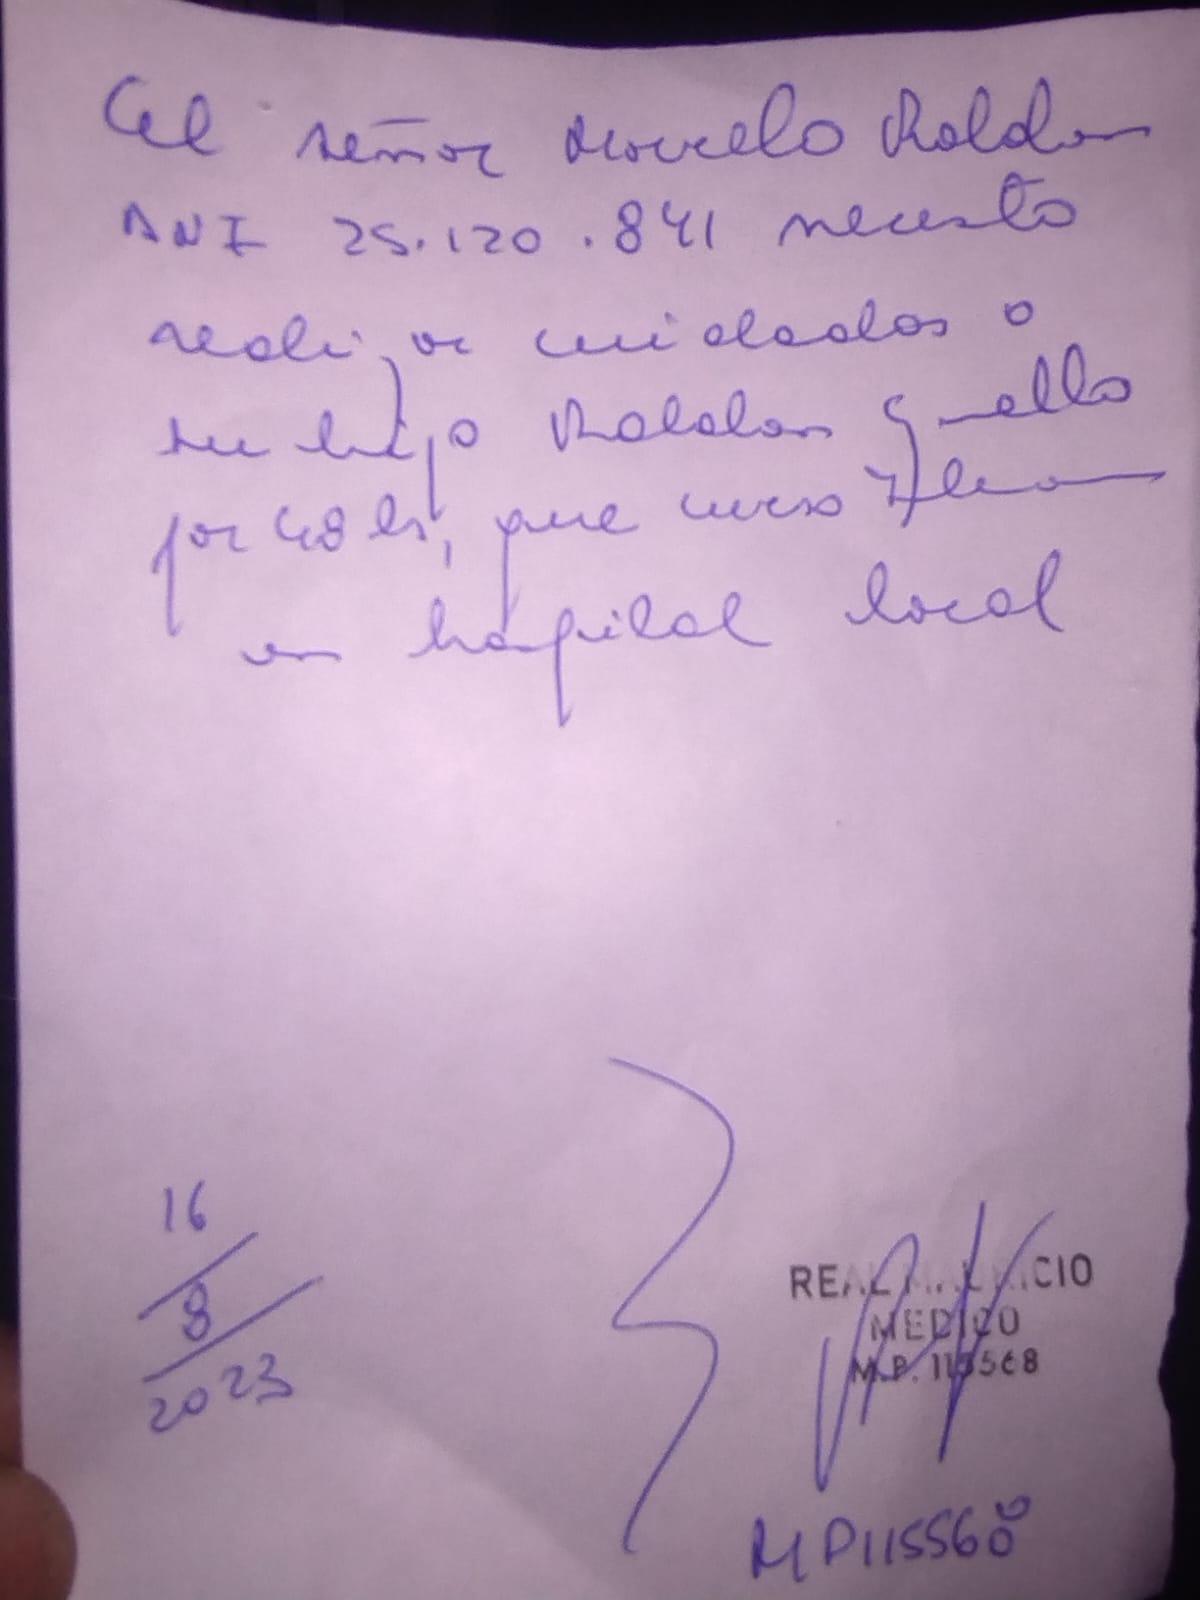 El señor Marcelo Roldan
DNI 25.120.841 necesita
realizar cuidados a
su hijo Roldan
por 48 hs, que curso
en hospital local
16
8
2023
MEDICO
M.P. 115568
MP115568